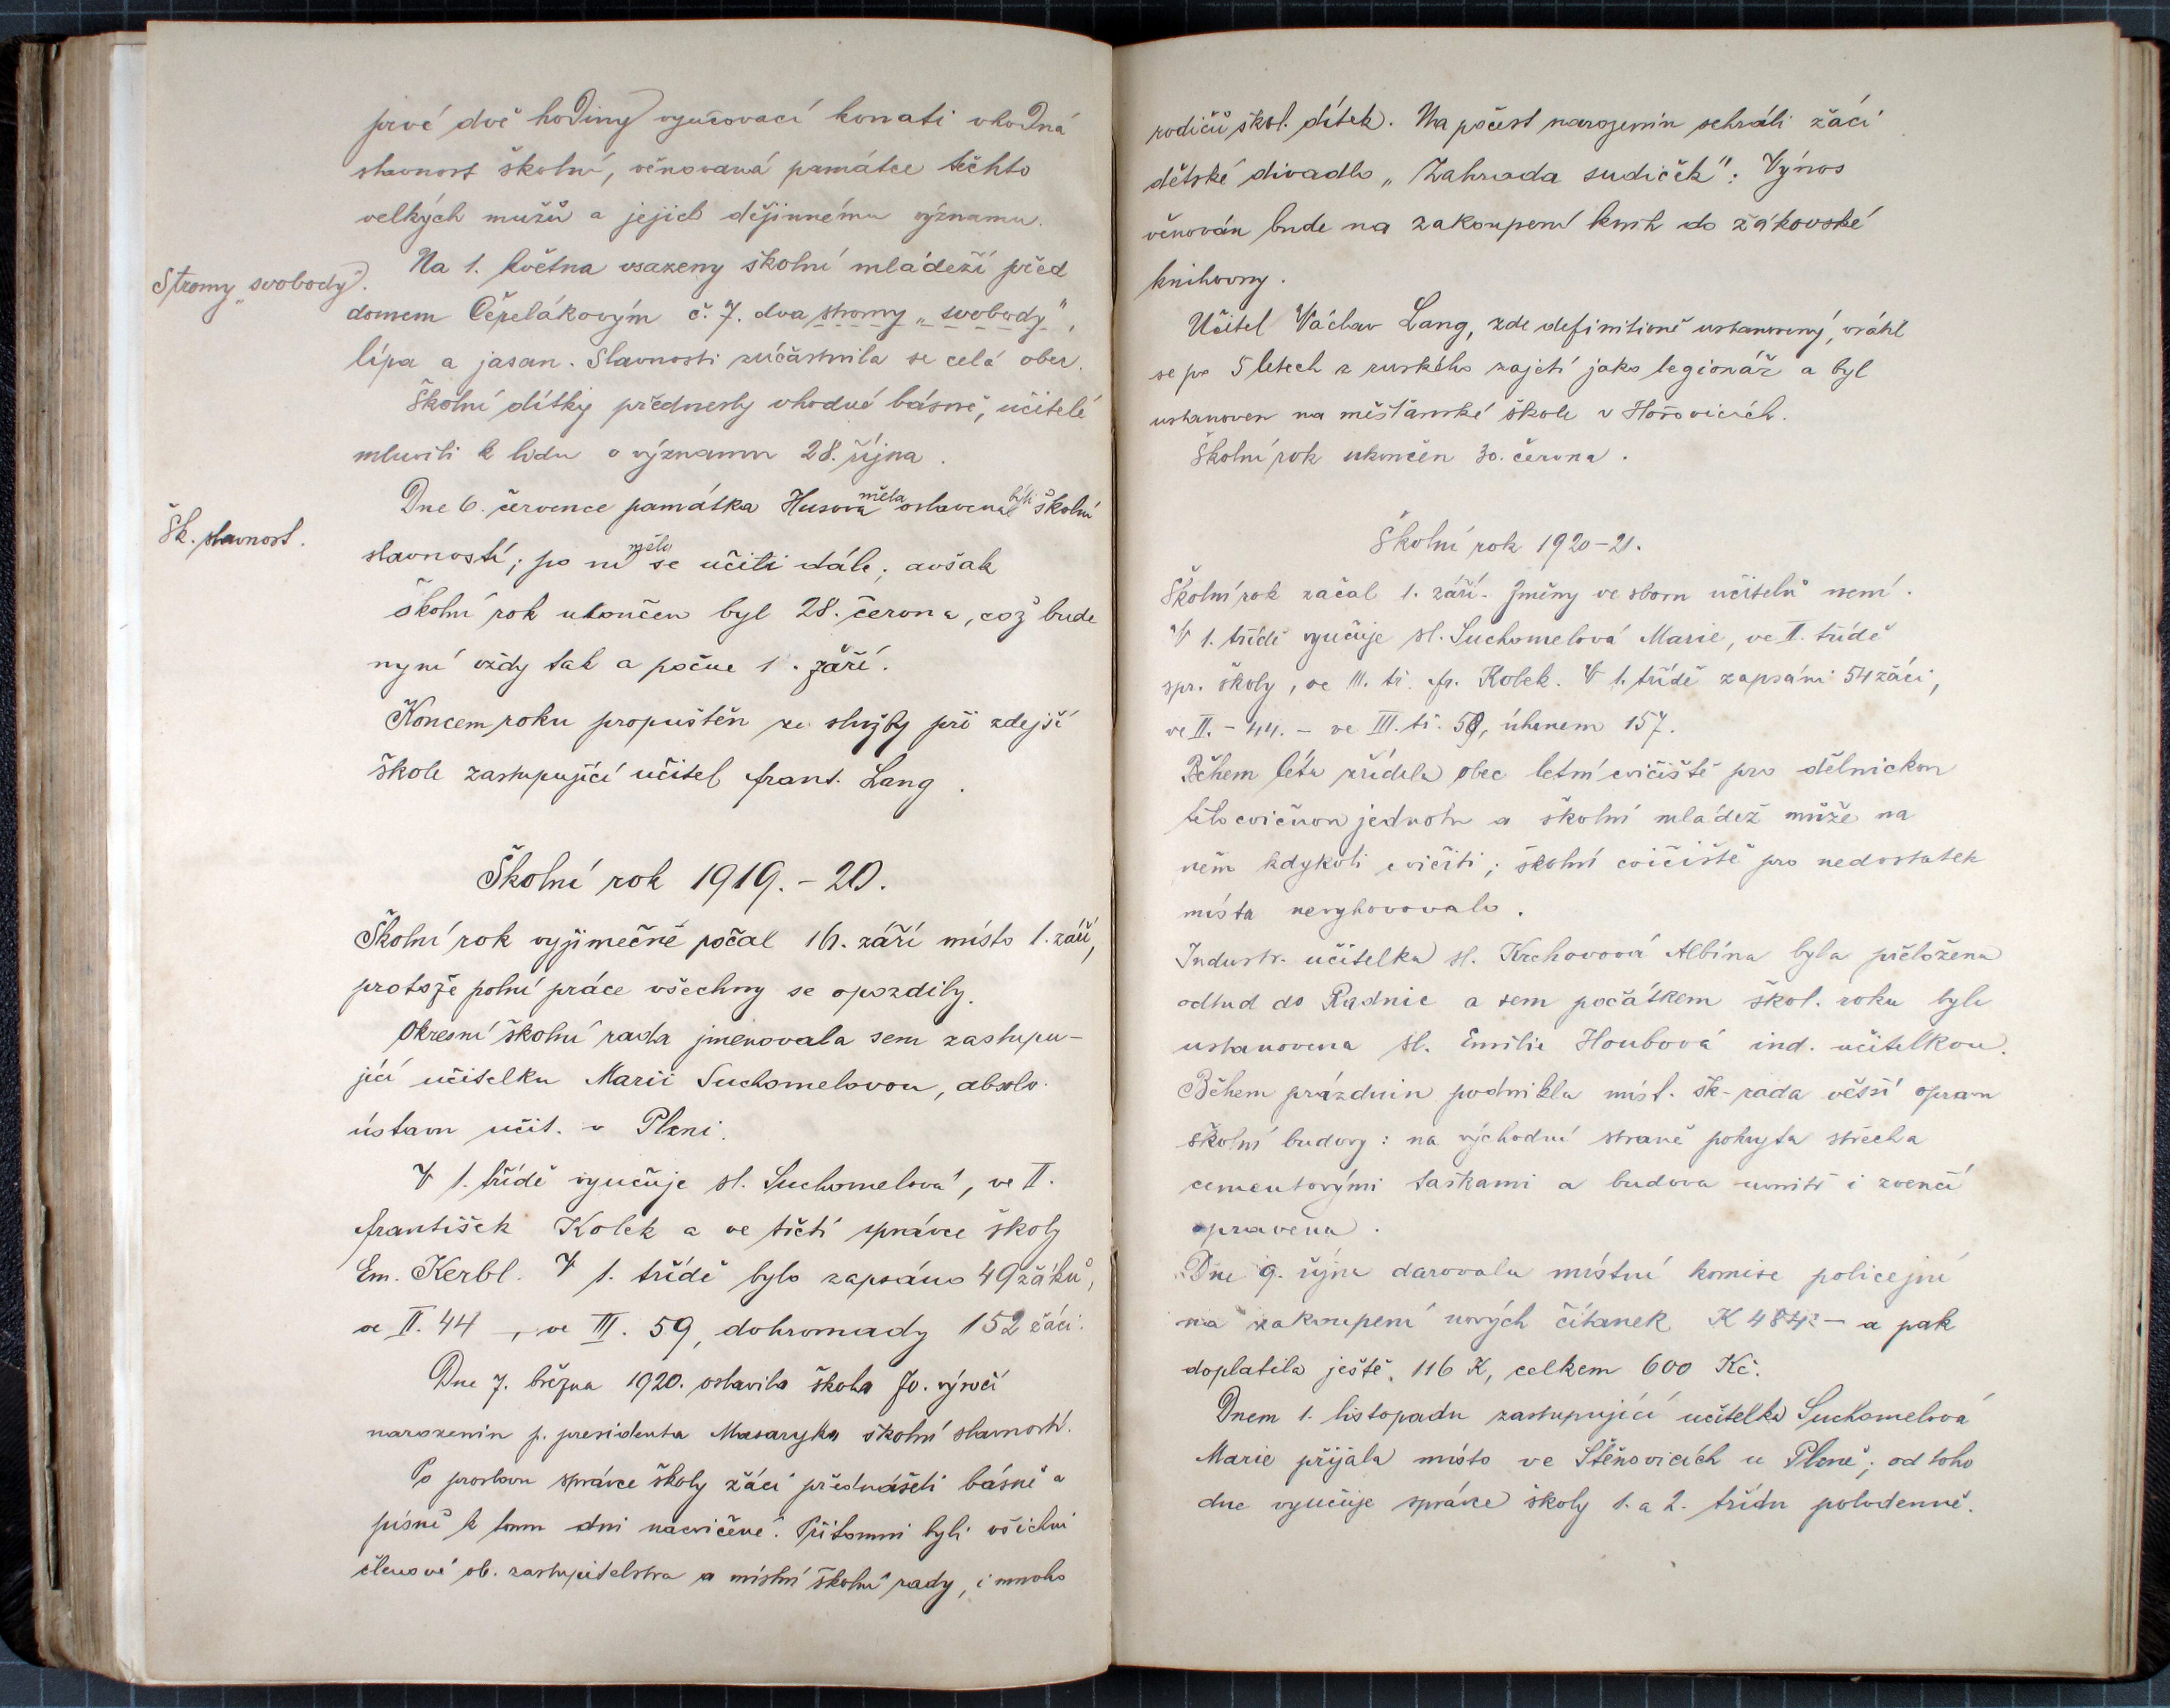 prvé dvě hodiny vyučovací konati vhodná
slavnost školní, věnovaná památce těchto
velkých mužů a jejich dějinnému významu.
Stromy „svobody".
Na 1. května vsazeny školní mládeží před
domem Čepelákovým č. 7. dva stromy „svobody",
lípa a jasan. Slavnosti zúčastnila se celá obec.
Školní dítky přednesly vhodné básně, učitelé
mluvili k lidu o významu 28. října.
Šk. slavnost.
Dne 6. července památka Husova měla oslavena býti školní
slavností; po ní mělo se učiti dále; avšak
školní rok ukončen byl 28. června, což bude
nyní vždy tak a počne 1. září.
Koncem roku propuštěn ze služby při zdejší
škole zastupující učitel Frant. Lang.
Školní rok 1919.-20.
Školní rok vyjímečně počal 16. září místo 1. září,
protože polní práce všechny se opozdily.
Okresní školní rada jmenovala sem zastupu-
jící učitelku Marii Suchomelovou, absolv.
ústavu učit. v Plzni.
V 1. třídě vyučuje sl. Suchomelová, ve II.
František Kolek a ve třetí správce školy
Em. Kerbl. V 1. třídě bylo zapsáno 49 žáků,
ve II. 44, ve III. 59, dohromady 152 žáci.
Dne 7. března 1920. oslavila škola 70. výročí
narozenin p. presidenta Masaryka školní slavností.
Po proslovu správce školy žáci přednášeli básně a
písně k tomu dni nacvičené. Přítomni byli všichni
členové ob. zastupitelstva a místní školní rady, i mnoho
rodičů škol. dítek. Na počest narozenin sehráli žáci
dětské divadlo „Zahrada sudiček". Výnos
věnován bude na zakoupení knih do žákovské
knihovny.
Učitel Václav Lang, zde definitivně ustanovený, vrátil
se po 5 letech z ruského zajetí jako legionář a byl
ustanoven na měšťanské škole v Hořovicích.
Školní rok ukončen 30. června.
Školní rok 1920-21.
Školní rok začal 1. září. Změny ve sboru učitelů není.
V 1. třídě vyučuje sl. Suchomelová Marie, ve II. třídě
spr. školy, ve III. tř. Fr. Kolek. V 1. třídě zapsáni 54 žáci,
ve II. - 44. - ve III. tř. 59, úhrnem 157.
Během léta zřídila obec letní cvičiště pro dělnickou
tělocvičnou jednotu a školní mládež může na
něm kdykoli cvičiti; školní cvičiště pro nedostatek
místa nevyhovovalo.
Industr. učitelka sl. Krchovová Albína byla přeložena
odtud do Radnic a sem počátkem škol. roku byla
ustanovena sl. Emilie Houbová ind. učitelkou.
Během prázdnin podnikla míst. šk. rada větší opravu
školní budovy: na východní straně pokryta střecha
cementovými taškami a budova uvnitř i zvenčí
opravena.
Dne 9. října darovala místní komise policejní
na zakoupení nových čítanek K 484.- a pak
doplatila ještě 116 K, celkem 600 Kč.
Dnem 1. listopadu zastupující učitelka Suchomelová
Marie přijala místo ve Štěnovicích u Plzně; od toho
dne vyučuje správce školy 1. a 2. třídu polodenně.